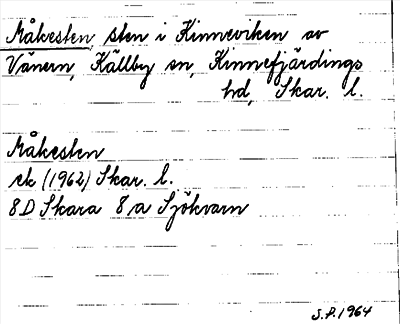 Måkesten, sten i Kinneviken av
Vänern, Källby sn, Kinnefjärdings
hd, Skar. l.
Måkesten
ek (1962) Skar. l.
8D Skara 8 a Sjökvarn
S.P. 1964